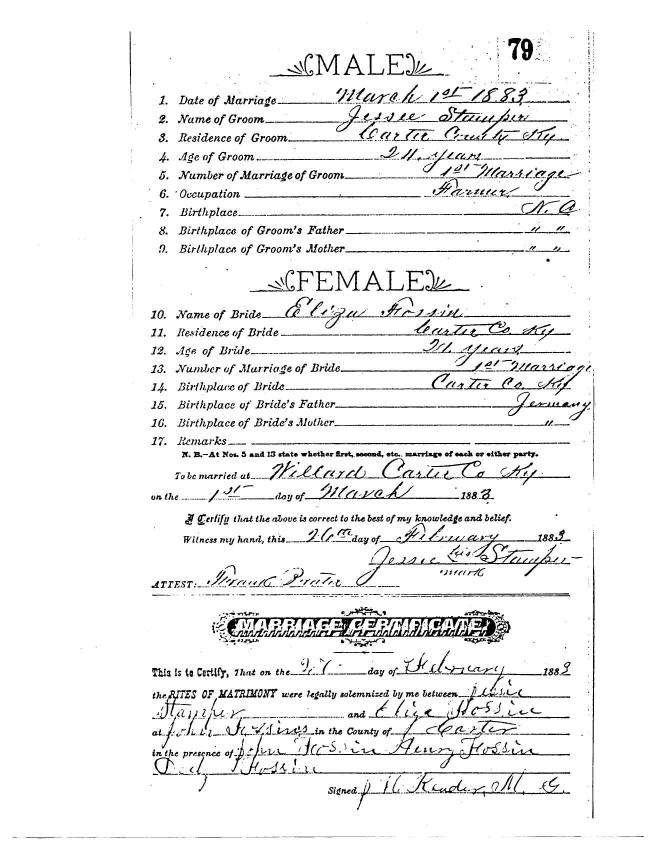 79
MALE
1. Date of Marriage March 1st 1883
2. Name of Groom Jessee Stamper
3. Residence of Groom Carter County Ky
4. Age of Groom 24 years
5. Number of Marriage of Groom 1st Marriage
6. Occupation Farmer
7. Birthplace N. C
8. Birthplace of Groom's Father " "
9. Birthplace of Groom's Mother " "
FEMALE
10. Name of Bride Eliza Fossin
11. Residence of Bride Carter Co Ky
12. Age of Bride 21 years
13. Number of Marriage of Bride 1st Marriage
14. Birthplace of Bride Carter Co. Ky
15. Birthplace of Bride's Father Germany
16. Birthplace of Bride's Mother "
17. Remarks
N. B.—At Nos. 5 and 13 state whether first, second, etc., marriage of each or either party.
To be married at Willard Carter Co Ky
on the 1st day of March 1883
I Certify that the above is correct to the best of my knowledge and belief.
Witness my hand, this 26th day of February 1883
Jessie his Stamper
mark
ATTEST: Frank Prater
MARRIAGE CERTIFICATE.
This is to Certify, That on the 27 day of February 1883
the RITES OF MATRIMONY were legally solemnized by me between Jessie
Stamper and Eliza Hossin
at John in the County of Carter
in the presence of John Hossin Henry Hossin
Hossin
Signed J H M. G.